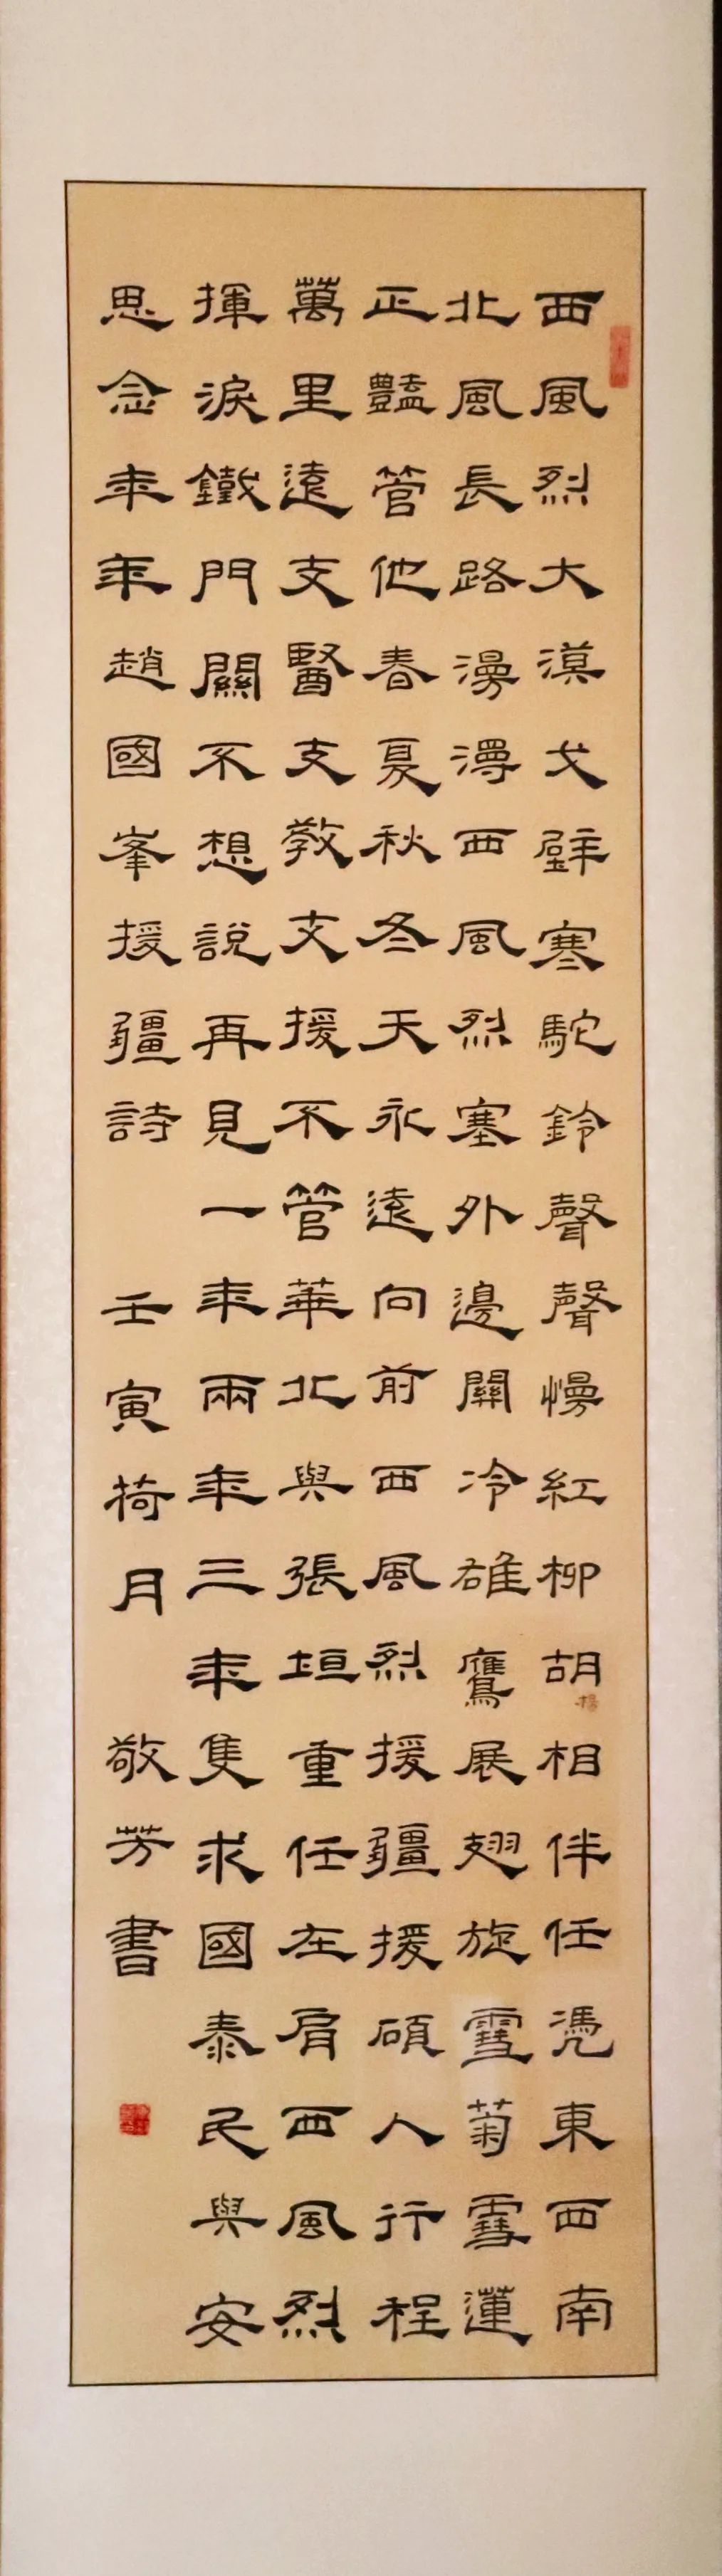 西風烈大漠戈壁寒駝鈴聲聲慢紅柳胡楊相伴任凴東西南
北風長路漫漫西風烈塞外邊關冷雄鷹展翅旋雪菊雪蓮
正豔管他春夏秋冬天永遠向前西風烈援疆援碩人行程
萬里遠支醫支教支援不管華北與張垣重任在肩西風烈
揮淚鐵門關不想說再見一年兩年三年隻求國泰民與安
思念年年趙國峯援疆詩 壬寅荷月 敬芳書